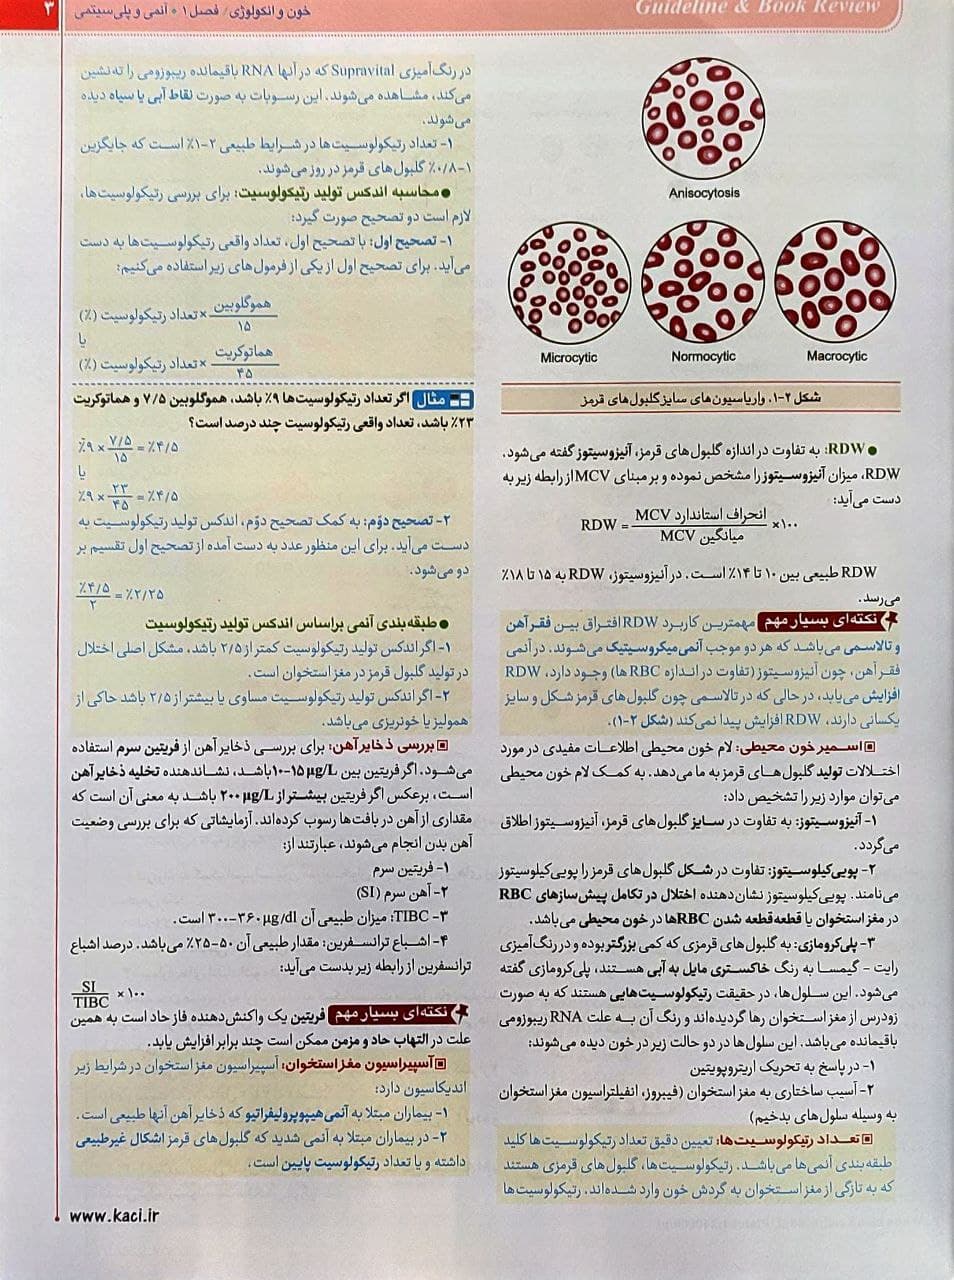 Guideline & Book Review
خون و انکولوژی/ فصل ۱ • آنمی و پلی‌سیتمی
۳
Anisocytosis
Microcytic
Normocytic
Macrocytic
شکل ۲-۱. واریاسیون‌های سایز گلبول‌های قرمز
● RDW: به تفاوت در اندازه گلبول‌های قرمز، آنیزوسیتوز گفته می‌شود.
RDW، میزان آنیزوسیتوز را مشخص نموده و بر مبنای MCV از رابطه زیر به
دست می‌آید:
RDW = انحراف استاندارد MCV / میانگین MCV ×۱۰۰
RDW طبیعی بین ۱۰ تا ۱۴٪ است. در آنیزوسیتوز، RDW به ۱۵ تا ۱۸٪
می‌رسد.
نکته‌ای بسیار مهم مهمترین کاربرد RDW افتراق بین فقر آهن
و تالاسمی می‌باشد که هر دو موجب آنمی میکروسیتیک می‌شوند. در آنمی
فقر آهن، چون آنیزوسیتوز (تفاوت در اندازه RBC ها) وجود دارد، RDW
افزایش می‌یابد، در حالی که در تالاسمی چون گلبول‌های قرمز شکل و سایز
یکسانی دارند، RDW افزایش پیدا نمی‌کند (شکل ۲-۱).
اسمیر خون محیطی: لام خون محیطی اطلاعات مفیدی در مورد
اختلالات تولید گلبول‌های قرمز به ما می‌دهد. به کمک لام خون محیطی
می‌توان موارد زیر را تشخیص داد:
۱- آنیزوسیتوز: به تفاوت در سایز گلبول‌های قرمز، آنیزوسیتوز اطلاق
می‌گردد.
۲- پویی‌کیلوسیتوز: تفاوت در شکل گلبول‌های قرمز را پویی‌کیلوسیتوز
می‌نامند. پویی‌کیلوسیتوز نشان‌دهنده اختلال در تکامل پیش‌سازهای RBC
در مغز استخوان یا قطعه‌قطعه شدن RBCها در خون محیطی می‌باشد.
۳- پلی‌کرومازی: به گلبول‌های قرمزی که کمی بزرگتر بوده و در رنگ‌آمیزی
رایت - گیمسا به رنگ خاکستری مایل به آبی هستند، پلی‌کرومازی گفته
می‌شود. این سلول‌ها، در حقیقت رتیکولوسیت‌هایی هستند که به صورت
زودرس از مغز استخوان رها گردیده‌اند و رنگ آن به علت RNA ریبوزومی
باقیمانده می‌باشد. این سلول‌ها در دو حالت زیر در خون دیده می‌شوند:
۱- در پاسخ به تحریک اریتروپویتین
۲- آسیب ساختاری به مغز استخوان (فیبروز، انفیلتراسیون مغز استخوان
به وسیله سلول‌های بدخیم)
تعداد رتیکولوسیت‌ها: تعیین دقیق تعداد رتیکولوسیت‌ها کلید
طبقه‌بندی آنمی‌ها می‌باشد. رتیکولوسیت‌ها، گلبول‌های قرمزی هستند
که به تازگی از مغز استخوان به گردش خون وارد شده‌اند. رتیکولوسیت‌ها
در رنگ‌آمیزی Supravital که در آنها RNA باقیمانده ریبوزومی را ته‌نشین
می‌کند، مشاهده می‌شوند. این رسوبات به صورت نقاط آبی یا سیاه دیده
می‌شوند.
۱- تعداد رتیکولوسیت‌ها در شرایط طبیعی ۲-۱٪ است که جایگزین
۱-۰/۸٪ گلبول‌های قرمز در روز می‌شوند.
● محاسبه اندکس تولید رتیکولوسیت: برای بررسی رتیکولوسیت‌ها،
لازم است دو تصحیح صورت گیرد:
۱- تصحیح اول: با تصحیح اول، تعداد واقعی رتیکولوسیت‌ها به دست
می‌آید. برای تصحیح اول از یکی از فرمول‌های زیر استفاده می‌کنیم:
هموگلوبین / ۱۵ × تعداد رتیکولوسیت (٪)
یا
هماتوکریت / ۴۵ × تعداد رتیکولوسیت (٪)
مثال اگر تعداد رتیکولوسیت‌ها ۹٪ باشد، هموگلوبین ۷/۵ و هماتوکریت
۲۳٪ باشد، تعداد واقعی رتیکولوسیت چند درصد است؟
٪۹ × ۷/۵ / ۱۵ = ٪۴/۵
یا
٪۹ × ۲۳ / ۴۵ = ٪۴/۵
۲- تصحیح دوّم: به کمک تصحیح دوّم، اندکس تولید رتیکولوسیت به
دست می‌آید. برای این منظور عدد به دست آمده از تصحیح اول تقسیم بر
دو می‌شود.
٪۴/۵ / ۲ = ٪۲/۲۵
● طبقه‌بندی آنمی براساس اندکس تولید رتیکولوسیت
۱- اگر اندکس تولید رتیکولوسیت کمتر از ۲/۵ باشد، مشکل اصلی اختلال
در تولید گلبول قرمز در مغز استخوان است.
۲- اگر اندکس تولید رتیکولوسیت مساوی یا بیشتر از ۲/۵ باشد حاکی از
همولیز یا خونریزی می‌باشد.
بررسی ذخایر آهن: برای بررسی ذخایر آهن از فریتین سرم استفاده
می‌شود. اگر فریتین بین ۱۵-۱۰ µg/L باشد، نشاندهنده تخلیه ذخایر آهن
است، برعکس اگر فریتین بیشتر از ۲۰۰ µg/L باشد به معنی آن است که
مقداری از آهن در بافت‌ها رسوب کرده‌اند. آزمایشاتی که برای بررسی وضعیت
آهن بدن انجام می‌شوند، عبارتند از:
۱- فریتین سرم
۲- آهن سرم (SI)
۳- TIBC: میزان طبیعی آن ۳۶۰-۳۰۰ µg/dl است.
۴- اشباع ترانسفرین: مقدار طبیعی آن ۵۰-۲۵٪ می‌باشد. درصد اشباع
ترانسفرین از رابطه زیر بدست می‌آید:
SI / TIBC × ۱۰۰
نکته‌ای بسیار مهم فریتین یک واکنش‌دهنده فاز حاد است به همین
علت در التهاب حاد و مزمن ممکن است چند برابر افزایش یابد.
آسپیراسیون مغز استخوان: آسپیراسیون مغز استخوان در شرایط زیر
اندیکاسیون دارد:
۱- بیماران مبتلا به آنمی هیپوپرولیفراتیو که ذخایر آهن آنها طبیعی است.
۲- در بیماران مبتلا به آنمی شدید که گلبول‌های قرمز اشکال غیرطبیعی
داشته و یا تعداد رتیکولوسیت پایین است.
www.kaci.ir